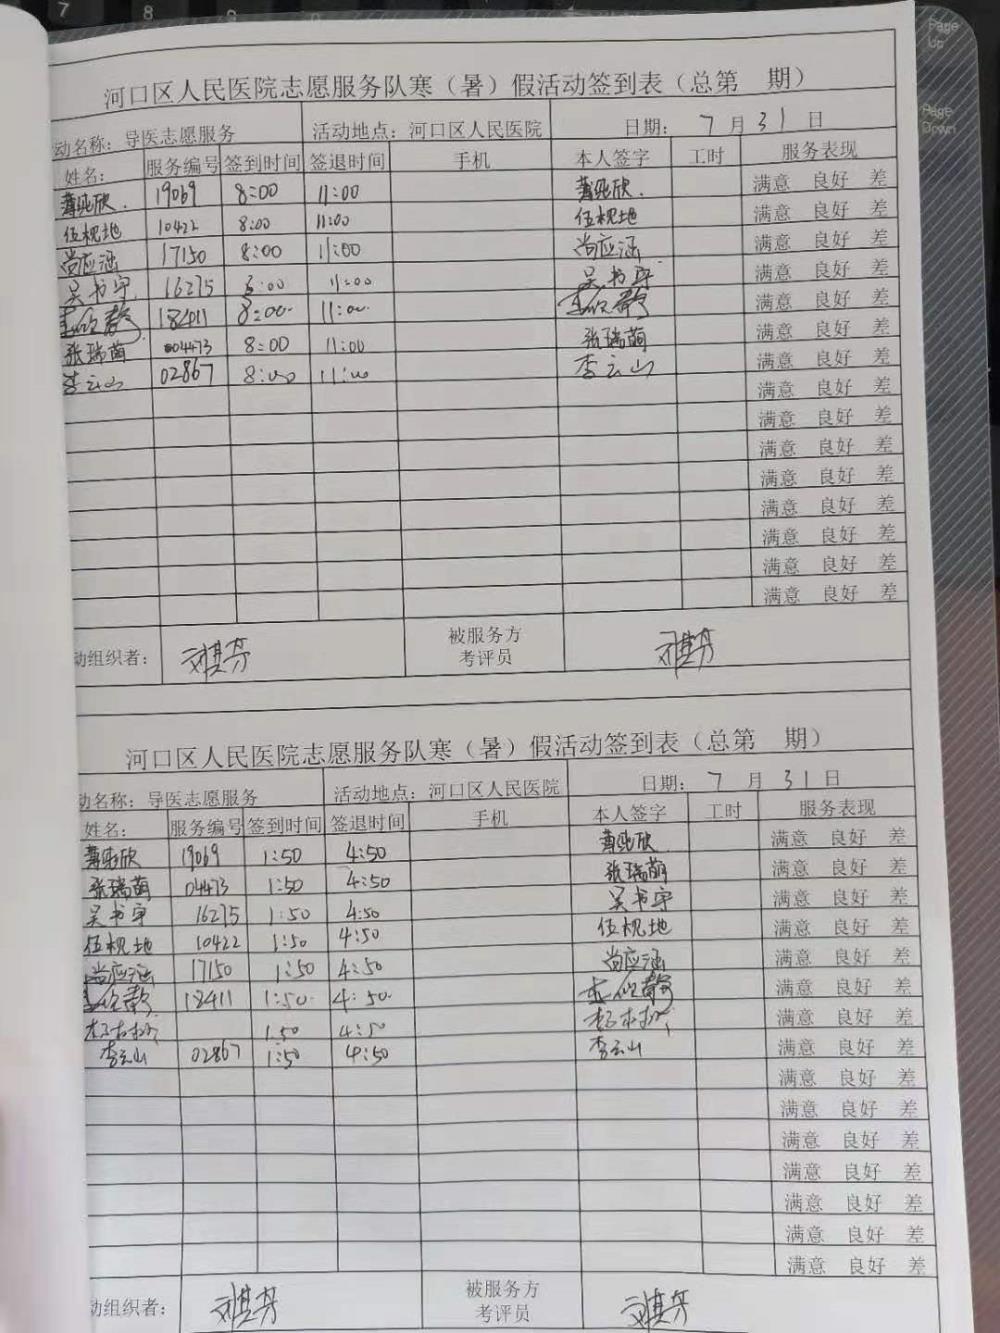 7 8
Page
Up
Page
Down
河口区人民医院志愿服务队寒（暑）假活动签到表（总第 期）
动名称：导医志愿服务 活动地点：河口区人民医院 日期： 7 月 31 日
姓名： 服务编号 签到时间 签退时间 手机 本人签字 工时 服务表现
19069 8:00 11:00 满意 良好 差
伍枧地 10422 8:00 11:00 伍枧地 满意 良好 差
尚应涵 17150 8:00 11:00 尚应涵 满意 良好 差
吴书宇 16275 8:00 11:00 吴书宇 满意 良好 差
18411 8:00 11:00 满意 良好 差
张瑞萌 04473 8:00 11:00 张瑞萌 满意 良好 差
李云山 02867 8:00 11:00 李云山 满意 良好 差
满意 良好 差
满意 良好 差
满意 良好 差
满意 良好 差
满意 良好 差
满意 良好 差
满意 良好 差
满意 良好 差
动组织者： 刘其芬 被服务方 考评员 刘其芬
河口区人民医院志愿服务队寒（暑）假活动签到表（总第 期）
动名称：导医志愿服务 活动地点：河口区人民医院 日期： 7 月 31 日
姓名： 服务编号 签到时间 签退时间 手机 本人签字 工时 服务表现
19069 1:50 4:50 满意 良好 差
张瑞萌 04473 1:50 4:50 张瑞萌 满意 良好 差
吴书宇 16275 1:50 4:50 吴书宇 满意 良好 差
伍枧地 10422 1:50 4:50 伍枧地 满意 良好 差
尚应涵 17150 1:50 4:50 尚应涵 满意 良好 差
18411 1:50 4:50 满意 良好 差
1:50 4:50 满意 良好 差
李云山 02867 1:50 4:50 李云山 满意 良好 差
满意 良好 差
满意 良好 差
满意 良好 差
满意 良好 差
满意 良好 差
满意 良好 差
满意 良好 差
动组织者： 刘其芬 被服务方 考评员 刘其芬